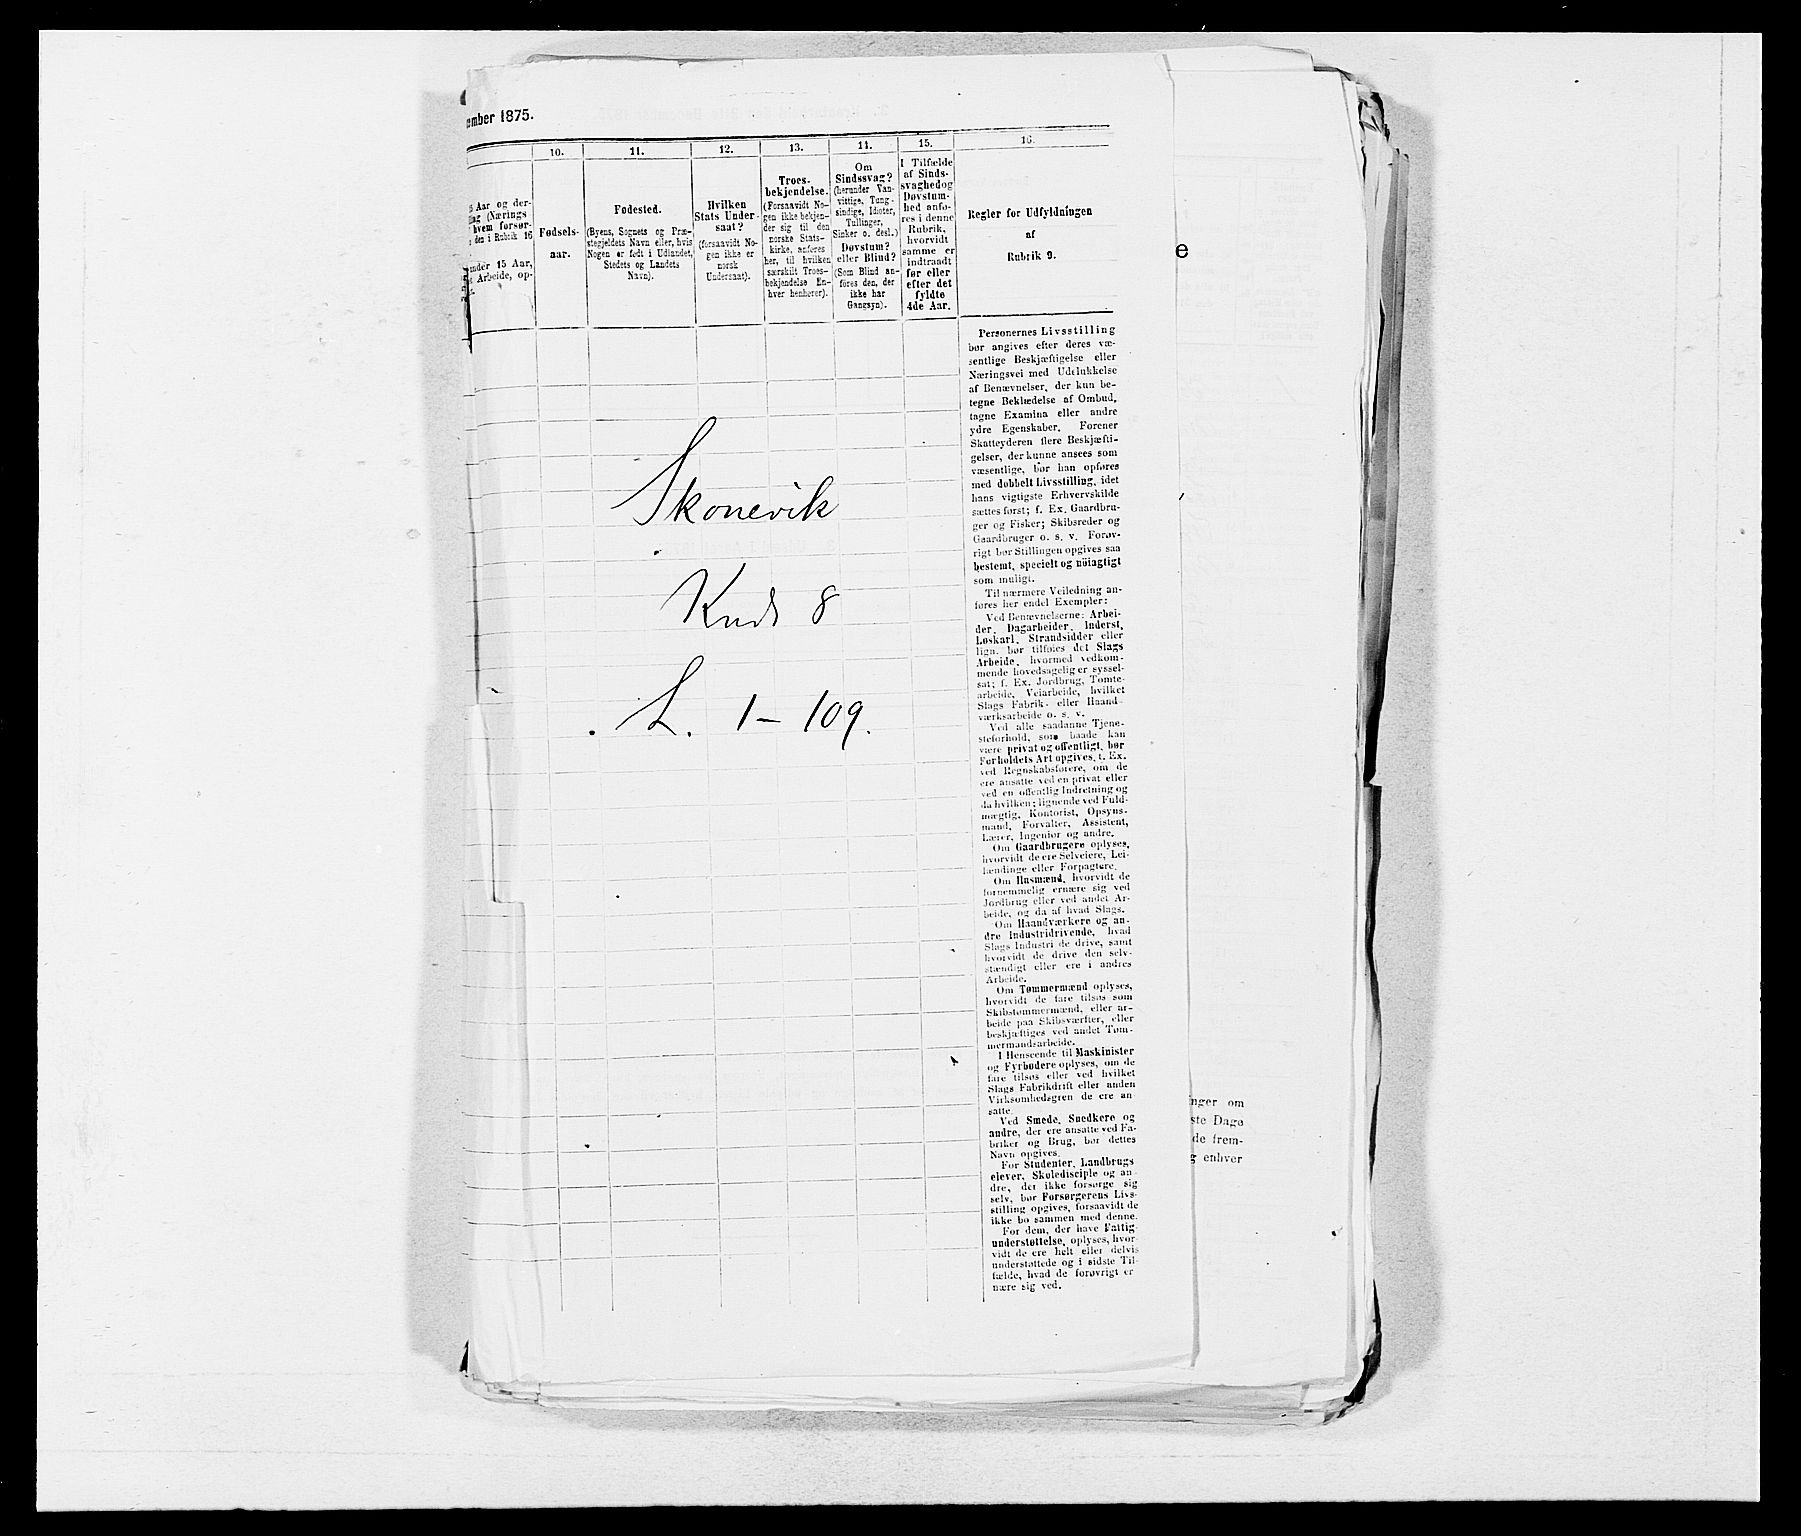 ember 1875.
10.
11.
12.
13.
14.
15.
16.
5 Aar og der-
ling (Nærings
hvem forsør-
den i Rubrik 16
under 15 Aar,
Arbeide, op-
Fødsels-
aar.
Fødested.
(Byens, Sognets og Præ-
stegjeldets Navn eller, hvis
Nogen er født i Udlandet,
Stedets og Landets
Navn).
Hvilken
Stats Under-
saat?
(forsaavidt No-
gen ikke er
norsk
Undersaat).
Troes-
bekjendelse.
(Forsaavidt No-
gen ikke bekjen-
der sig til den
norske Stats-
kirke, anføres
her, til hvilken
særskilt Troes-
bekjendelse En-
hver henhører).
Om
Sindssvag?
(herunder Van-
vittige, Tung-
sindige, Idioter,
Tullinger,
Sinker o. desl.)
Døvstum?
eller Blind?
(Som Blind an-
føres den, der
ikke har
Gangsyn).
I Tilfælde
af Sinds-
svaghed og
Døvstum-
hed anfø-
res i denne
Rubrik,
hvorvidt
samme er
indtraadt
før eller
efter det
fyldte
4de Aar.
Regler for Udfyldningen
af
Rubrik 9.
e
Personernes Livsstilling
bør angives efter deres væ-
sentlige Beskjæftigelse eller
Næringsvei med Udelukkelse
af Benævnelser, der kun be-
tegne Beklædelse af Ombud,
tagne Examina eller andre
ydre Egenskaber. Forener
Skatteyderen flere Beskjæfti-
gelser, der kunne ansees som
væsentlige, bør han opføres
med dobbelt Livsstilling, idet
hans vigtigste Erhvervskilde
sættes først; f. Ex. Gaardbru-
ger og Fisker; Skibsreder og
Gaardbruger o. s. v. Forøv-
rigt bør Stillingen opgives saa
bestemt, specielt og nöiagtigt
som muligt.
Til nærmere Veiledning an-
føres her endel Exempler:
Ved Benævnelserne: Arbei-
der, Dagarbeider, Inderst,
Løskarl, Strandsidder eller
lign. bør tilføies det Slags
Arbeide, hvormed vedkom-
mende hovedsagelig er syssel-
sat; f. Ex. Jordbrug, Tomte-
arbeide, Veiarbeide, hvilket
Slags Fabrik- eller Haand-
værksarbeide o. s. v.
Ved alle saadanne Tjene-
steforhold, som baade kan
være privat og offentligt, bør
Forholdets Art opgives, f. Ex.
ved Regnskabsførere, om de
ere ansatte ved en privat eller
ved en offentlig Indretning og
da hvilken; lignende ved Fuld-
mægtig, Kontorist, Opsyns-
mand, Forvalter, Assistent,
Lærer, Ingeniør og andre.
Om Gaardbrugere oplyses,
hvorvidt de ere Selveiere, Lei-
lændinge eller Forpagtere.
Om Husmænd, hvorvidt de
fornemmelig ernære sig ved
Jordbrug eller ved andet Ar-
beide, og da af hvad Slags.
Om Haandværkere og an-
dre Industridrivende, hvad
Slags Industri de drive, samt
hvorvidt de drive den selv-
stændigt eller ere i andres
Arbeide.
Om Tømmermænd oplyses,
hvorvidt de fare tilsøs som
Skibstømmermænd, eller ar-
beide paa Skibsværfter, eller
beskjæftiges ved andet Tøm-
mermandsarbeide.
I Henseende til Maskinister
og Fyrbødere oplyses, om de
fare tilsøs eller ved hvilket
Slags Fabrikdrift eller anden
Virksomhedsgren de ere an-
satte.
Ved Smede, Snedkere og
andre, der ere ansatte ved Fa-
briker og Brug, bør dettes
Navn opgives.
For Studenter, Landbrugs
elever, Skoledisciple og an-
dre, der ikke forsørge sig
selv, bør Forsørgerens Livs-
stilling opgives, forsaavidt de
ikke bo sammen med denne.
For dem, der have Fattig-
understøttelse, oplyses, hvor-
vidt de ere helt eller delvis
understøttede og i sidste Til-
fælde, hvad de forøvrigt er
nære sig ved.
Skonevik
Kreds 8
L. 1 – 109.
nger om
ste Dage
de frem-
g enhver